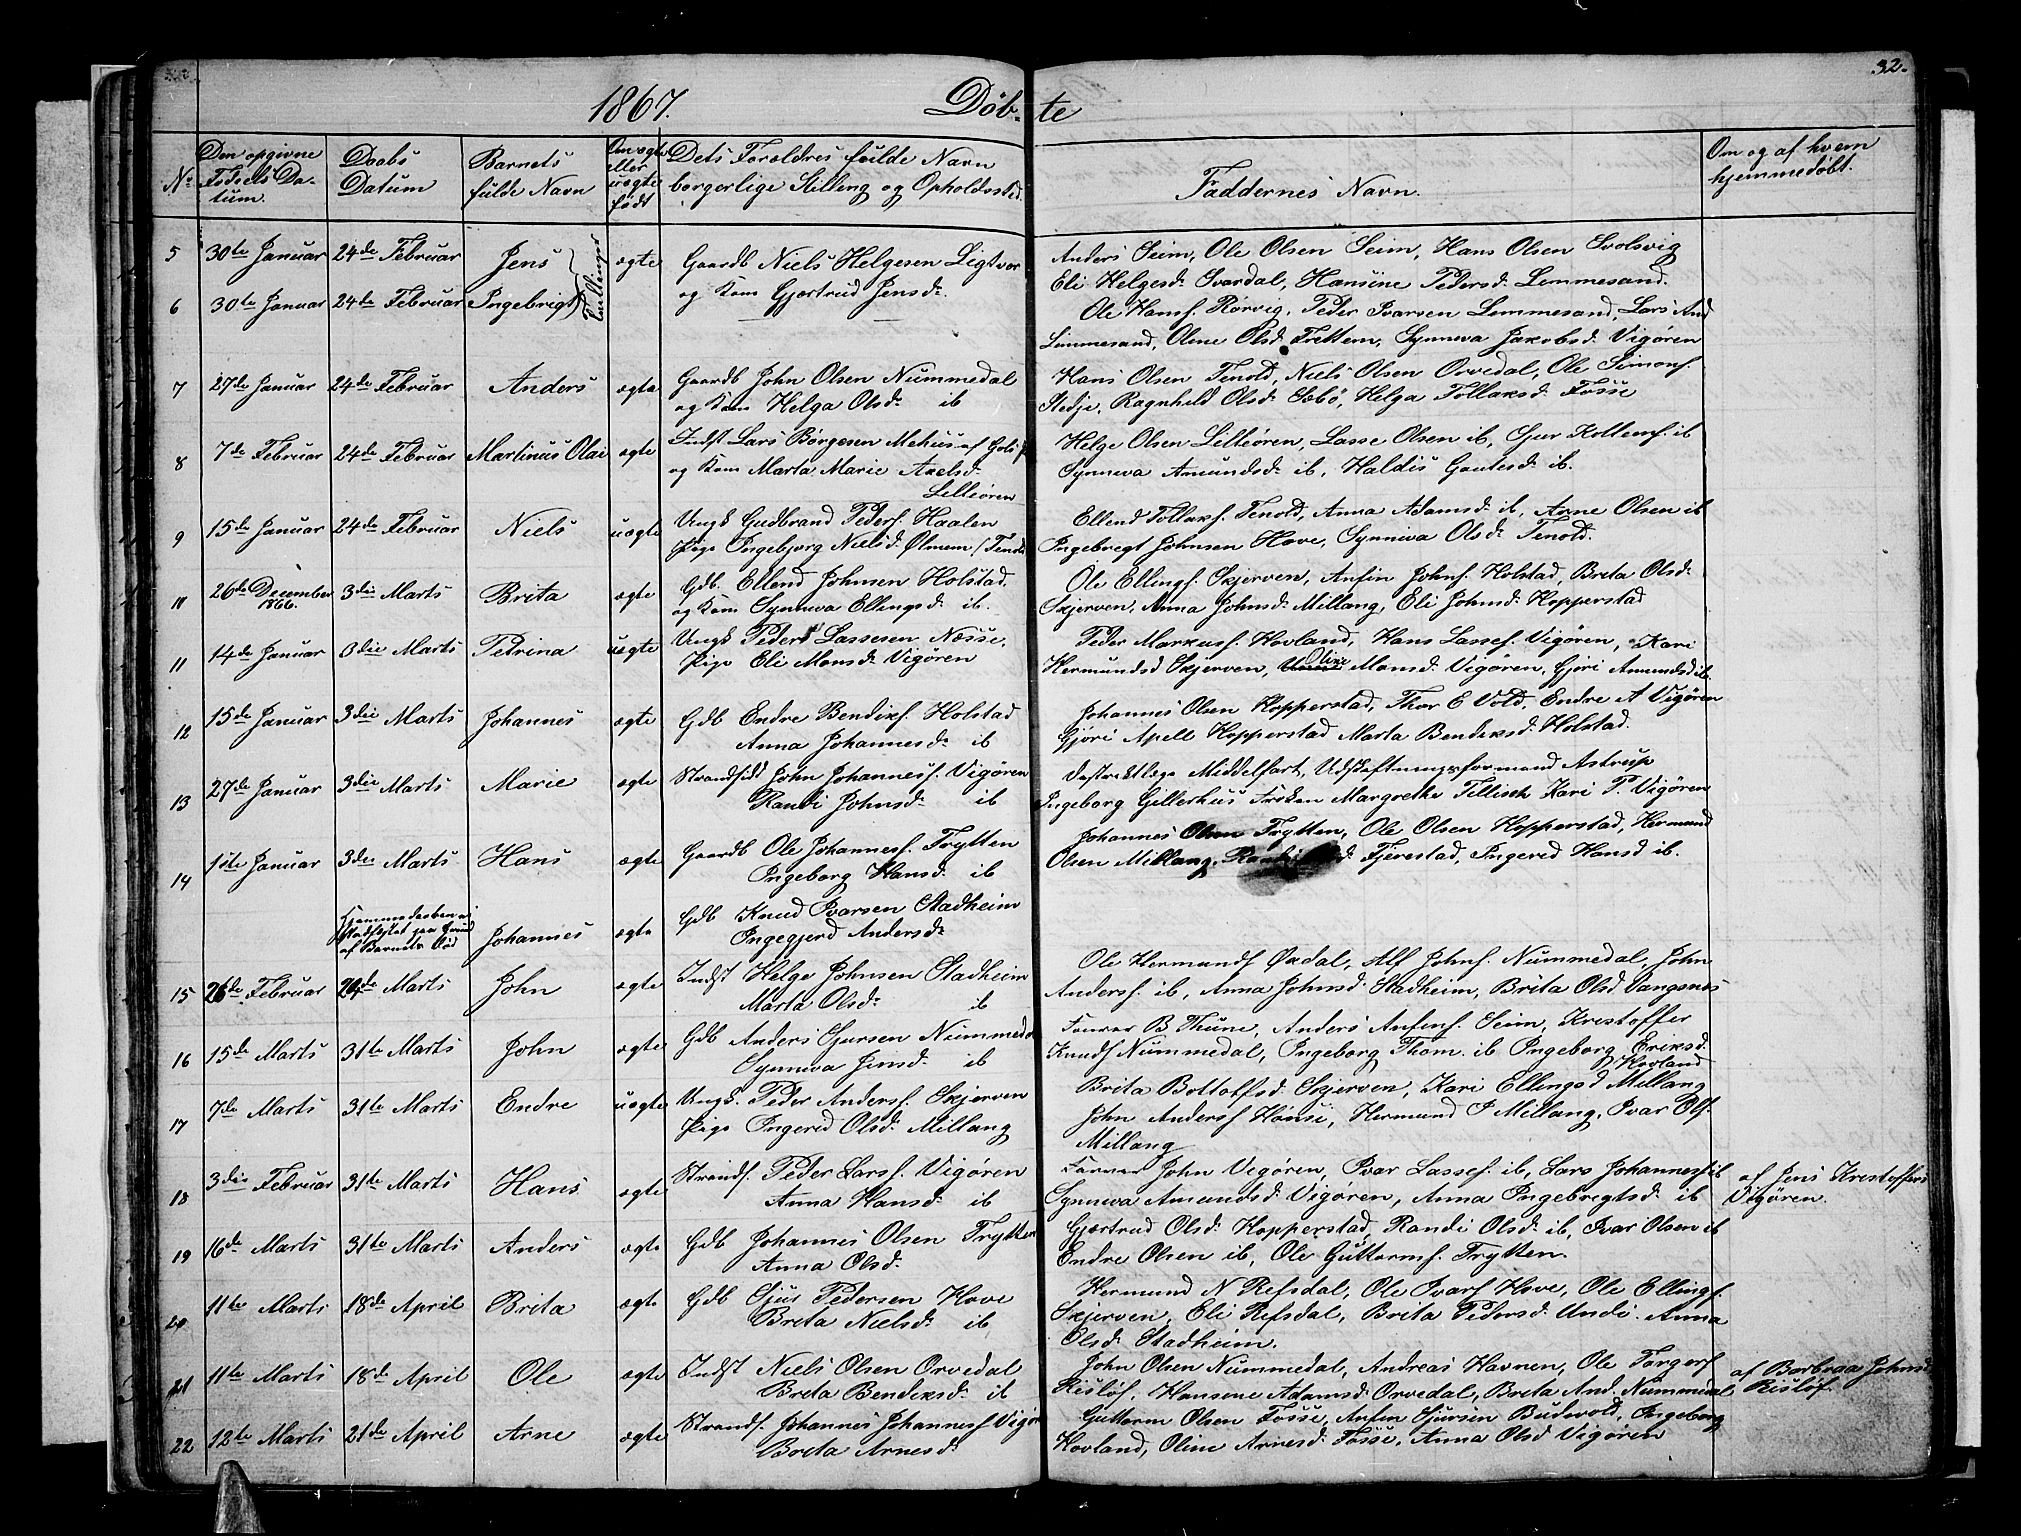 32.
1867. Döb- te
No
Den opgivne Fødsels Datum.
Daabs Datum
Barnets fulde Navn
Om ægte eller uægte født
Dets Foreldres fulde Navn borgerlige Stilling og Opholdssted
Faddernes Navn.
Om og af hvem hjemmedøbt.
5 30te Januar 24de Februar Jens ægte Gaardb Niels Helgesen Ligtvor
og Kone Gjertrud Jensdr
Tvillinger
Anders Seim, Ole Olsen Seim, Hans Olsen Svolsvig
Eli Helgesd. Svardal, Hansine Pedersd. Lemmesand.
6 30te Januar 24de Februar Ingebrigt
Ole Hansf. Rörvig, Peder Ivarsen Lemmesand, Lars And
Limmesand, Oline Olsd. Frettem, Synneva Jakobsd. Vigøren
7 27de Januar 24de Februar Anders ægte Gaardb John Olsen Nummedal
og Kone Helga Olsdr ib
Hans Olsen Tenold, Niels Olsen Orvedal, Ole Simonf.
Stedje, Ragnheld Olsd. Sæbö, Helga Tollaksd. Fosse
8 7de Februar 24de Februar Martinus Olai ægte Indst Lars Børgesen Mehus af Gols
og Kone Marta Marie Axelsd.
Lilleören
Helge Olsen Lilleören, Lasse Olsen ib, Sjur ib
Synneva Amundsd. ib, Haldis Gautesd. ib.
9 15de Januar 24de Februar Niels uægte Ungk Gudbrand Pederf. Haalen
Pige Ingebjorg Nielsd. Ølmem / Tenold
Ellend Tollaksf. Tenold, Anna Adamsd. ib, Arne Olsen ib
Ingebregt Johnsen Hove, Synneva Olsd. Tenold.
10 26de December 1866. 3die Marts Brita ægte Gdb. Ellend Johnsen Holstad.
og Kone Synneva Ellingsd. ib.
Ole Ellingf. Skjerven, Anfin Johnf. Holstad, Breta Olsd.
Skjerven, Anna Johnsd. Millang, Eli Johnsd. Hopperstad
11 14de Januar 3die Marts Petrina uægte Ungk Peder Lassesen Næsse,
Pige Eli Monsd. Vigøren
Peder Markusf. Hovland, Hans Lassef. Vigøren, Kari
Hermundsd Skjerven, Oline Monsd. Vigøren, Gjöri Amundsd ib.
12 15de Januar 3die Marts Johannes ægte Gdb Endre Bendikf. Holstad
Anna Johannesd. ib
Johannes Olsen Hopperstad, Thor E Vold, Endre A Vigøren
Gjöri Apell Hopperstad Marta Bendiksd. Holstad.
13 27de Januar 3die Marts Marie ægte Strandsidd John Johannesf. Vigøren
Randi Johnsd. ib
Destrektlæge Middelfart, Udskiftningsformand Astrup
Ingeborg Gillerhus Frøken Margrethe Tellisch Kari P. Vigøren
14 1ste Januar 3die Marts Hans ægte Gaardb Ole Johannesf. Frytten
Ingeborg Hansd. ib
Johannes Olsen Frytten, Ole Olsen Hopperstad, Hermund
Olsen Millang, Fjerestad, Ingered Hansd ib.
Hjemmedaaben ei
Stadfæstet paa Grund
af Barnets Död
Johannes ægte Gdb Knud Ivarsen Stadheim
Ingegjerd Andersd.
15 26de Februar 24de Marts John ægte Indst Helge Johnsen Stadheim
Marta Olsd. ib
Ole Hermundf Øxdal, Alf Johnf. Nummedal, John
Andersf. ib, Anna Johnsd. Stadheim, Brita Olsd Vangsnes
16 15de Marts 31te Marts John ægte Gdb Anders Sjursen Nummeda
Synneva Jensd. ib
Farver B Thune, Anders Anfinf. Seim, Krestoffer
Knudf Nummedal, Ingeborg Thom. ib Ingeborg Eriksd.
Hovland
17 7de Marts 31te Marts Endre uægte Ungk. Peder Andersf. Skjerven
Pige Ingered Olsd. Millang
Brita Bottolfsd. Skjerven, Kari Ellingsd Millang
John Andersf Hönsi, Hermund J Millang, Ivar Olf.
Millang
18 3die Februar 31te Marts Hans ægte Strandf. Peder Larsf. Vigøren
Anna Hansd. ib
Farver John Vigøren, Ivar Lassef. ib, Lars Johannesf ib
Synneva Amundsd. Vigøren, Anna Ingebregtsd. ib
af Jens Krestoffers
Vigøren.
19 16de Marts 31te Marts Anders ægte Gdb Johannes Olsen Frytten
Anna Olsd.
Gjertrud Olsd. Hopperstad, Randi Olsd. ib, Ivar Olsen ib
Endre Olsen ib, Ole Guttormf. Frytten.
20 11te Marts 18de April Brita ægte Gdb Sjur Pedersen Hove
Breta Nielsd. ib
Hermund N Refsdal, Ole Ivarf Hove, Ole Ellingf.
Skjerven, Eli Refsdal, Brita Pedersd. Undi. Anna
Olsd. Stadheim.
21 11te Marts 18de April Ole ægte Indst Niels Olsen Orvedal
Breta Bendiksd. ib
John Olsen Nummedal, Andreas Havnen, Ole Torgerf
Risløf, Hansene Adamsd. Orvedal, Brita And. Nummedal
af Barbraa Johnsd
Risløf.
22 12te Marts 21de April Arne ægte Strandf. Johannes Johannesf Vigør
Breta Arnesd.
Guttorm Olsen Fosse, Anfin Sjursen Budevold, Ingeborg
Hovland, Oline Arnesd. Fosse, Anna Olsd Vigøren